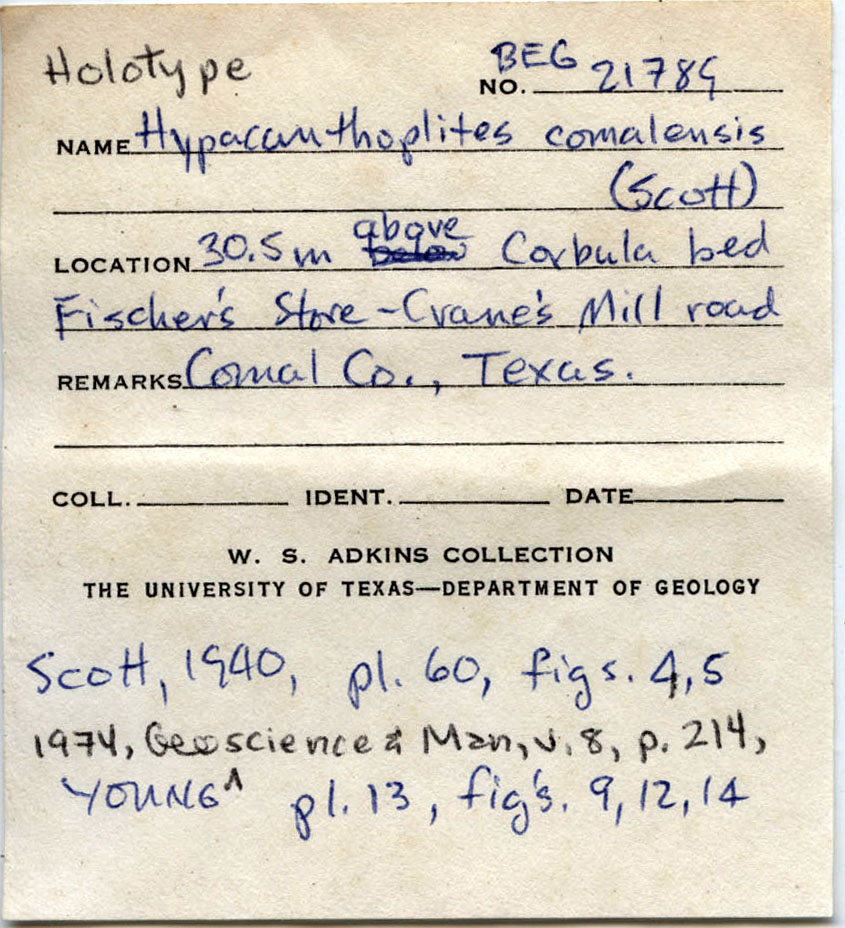 Holotype
BEG
NO. 21789
NAME Hypacanthoplites comalensis
(Scott)
above
LOCATION 30.5m below Corbula bed
Fischer's Store-Crane's Mill road
REMARKS Comal Co., Texas.
COLL. IDENT. DATE
W. S. ADKINS COLLECTION
THE UNIVERSITY OF TEXAS—DEPARTMENT OF GEOLOGY
Scott, 1940, pl. 60, figs. 4,5
1974, Geoscience & Man, v. 8, p. 214,
YOUNG ^ pl. 13, fig's. 9, 12, 14